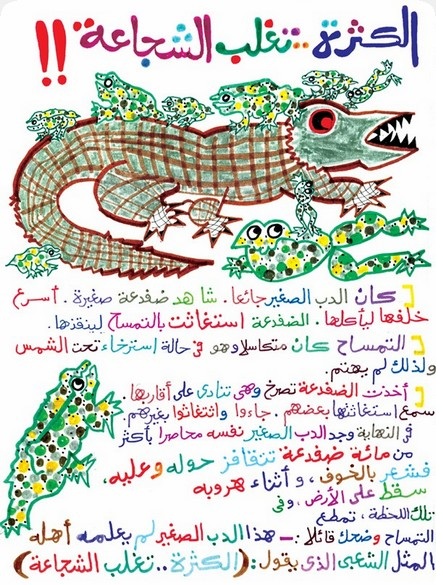 الكثرة .. تغلب الشجاعة !!
كان الدب الصغير جائعا . شاهد ضفدعة صغيرة . أسرع
خلفها ليأكلها . الضفدعة استغاثت بالتمساح لينقذها .
التمساح كان متكاسلا وهو في حالة إسترخاء تحت الشمس
ولذلك لم يهتم .
أخذت الضفدعة تصرخ وهي تنادى على أقاربها .
سمع استغاثتها بعضهم . جاءوا واستغاثوا بغيرهم .
في النهاية وجد الدب الصغير نفسه محاصرا بأكثر
من مائة ضفدعة تتقافز حوله وعليه .
فشعر بالخوف ، وأثناء هروبه
سقط على الأرض . وفي
تلك اللحظة ، تمطع
التمساح وضحك قائلا :ـ هذا الدب الصغير لم يعلمه أهله
المثل الشعبى الذى يقول : ( الكثرة .. تغلب الشجاعة )